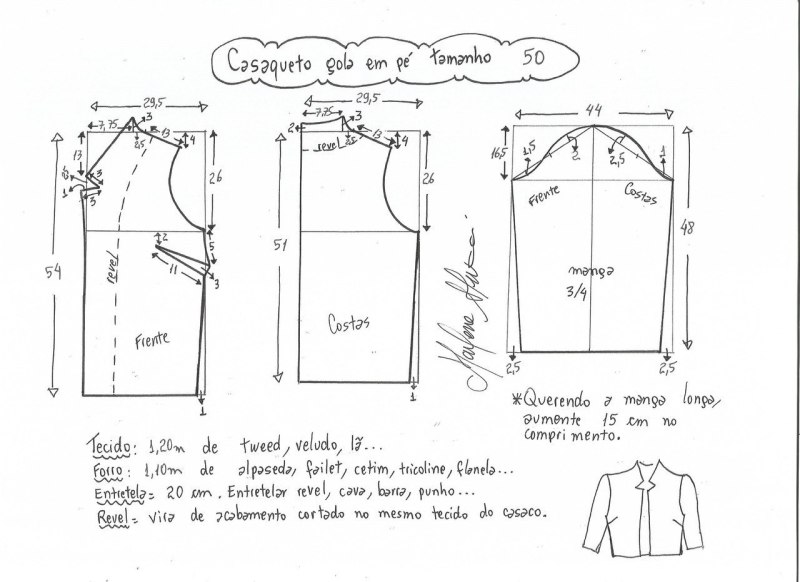 Casaqueto gola em pé tamanho 50
29,5
7,75
3
13
4
2,5
13
3
1
3
54
26
revel
2
5
11
3
Frente
1
29,5
7,75
3
2
13
4
revel
2,5
26
51
Costas
1
44
16,5
1,5
2
2,5
1
Frente
Costas
48
manga
3/4
2,5
2,5
Marlene Mukai
*Querendo a manga longa,
aumente 15 cm no
comprimento.
Tecido: 1,20m de tweed, veludo, lã...
Forro: 1,10m de alpaseda, failet, cetim, tricoline, flanela...
Entretela= 20 cm. Entretelar revel, cava, barra, punho...
Revel= vira de acabamento cortado no mesmo tecido do casaco.